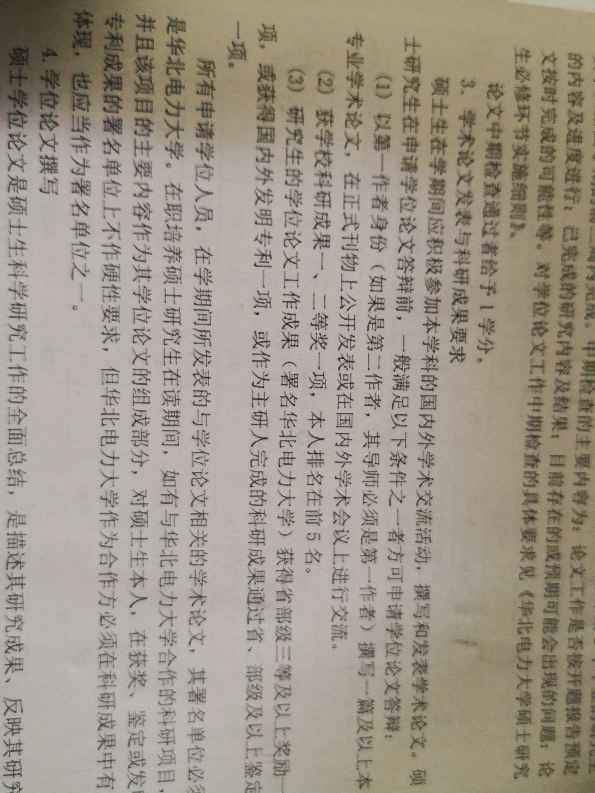 周内完成。中期检查的主要内容为：论文工作是否按开题报告预定
的内容及进度进行；已完成的研究内容及结果；目前存在的或预期可能会出现的问题；论
文按时完成的可能性等。对学位论文工作中期检查的具体要求见《华北电力大学硕士研究
生必修环节实施细则》。
论文中期检查通过者给予 1 学分。
3. 学术论文发表与科研成果要求
硕士生在学期间应积极参加本学科的国内外学术交流活动，撰写和发表学术论文。硕
士研究生在申请学位论文答辩前，一般满足以下条件之一者方可申请学位论文答辩：
（1）以第一作者身份（如果是第二作者，其导师必须是第一作者）撰写一篇及以上本
专业学术论文，在正式刊物上公开发表或在国内外学术会议上进行交流。
（2）获学校科研成果一、二等奖一项，本人排名在前 5 名。
（3）研究生的学位论文工作成果（署名华北电力大学）获得省部级三等及以上奖励一
项，或获得国内外发明专利一项，或作为主研人完成的科研成果通过省、部级及以上鉴定
一项。
所有申请学位人员，在学期间所发表的与学位论文相关的学术论文，其署名单位必须
是华北电力大学。在职培养硕士研究生在读期间，如有与华北电力大学合作的科研项目，
并且该项目的主要内容作为其学位论文的组成部分，对硕士生本人，在获奖、鉴定或发明
专利成果的署名单位上不作硬性要求，但华北电力大学作为合作方必须在科研成果中有
体现，也应当作为署名单位之一。
4. 学位论文撰写
硕士学位论文是硕士生科学研究工作的全面总结，是描述其研究成果、反映其研究